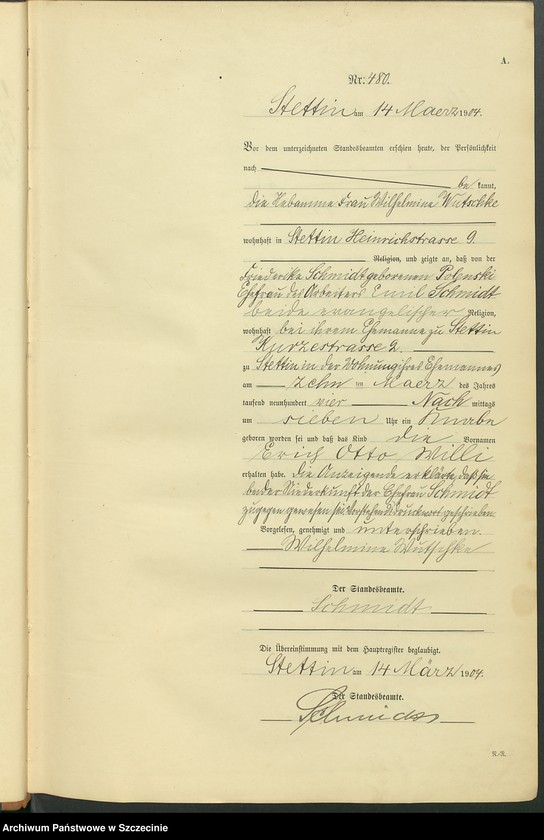 A.
Nr. 480.
Stettin am 14 Maerz 1904.
Vor dem unterzeichneten Standesbeamten erschien heute, der Persönlichkeit
nach
be kannt,
die Hebamme Frau Wilhelmine Wutschke
wohnhaft in Stettin Heinrichstrasse 9.
Religion, und zeigte an, daß von der
Friederike Schmidt geborenen Polenski
Ehefrau des Arbeiters Emil Schmidt
beide evangelischer Religion,
wohnhaft bei ihrem Ehemanne zu Stettin
Kurzestrasse 2.
zu Stettin in der Wohnung ihres Ehemannes
am zehn ten Maerz des Jahres
tausend neunhundert vier Nach mittags
um sieben Uhr ein Knabe
geboren worden sei und daß das Kind die Vornamen
Erich Otto Willi
erhalten habe. Die Anzeigende erklärte, daß sie
bei der Niederkunft der Ehefrau Schmidt
zugegen gewesen sei. Vorstehend Druckwort gestrichen.
Vorgelesen, genehmigt und unterschrieben.
Wilhelmine Wutschke
Der Standesbeamte.
Schmidt
Die Übereinstimmung mit dem Hauptregister beglaubigt.
Stettin am 14 März 1904.
Der Standesbeamte.
Schmidt
R.-R.
Archiwum Państwowe w Szczecinie